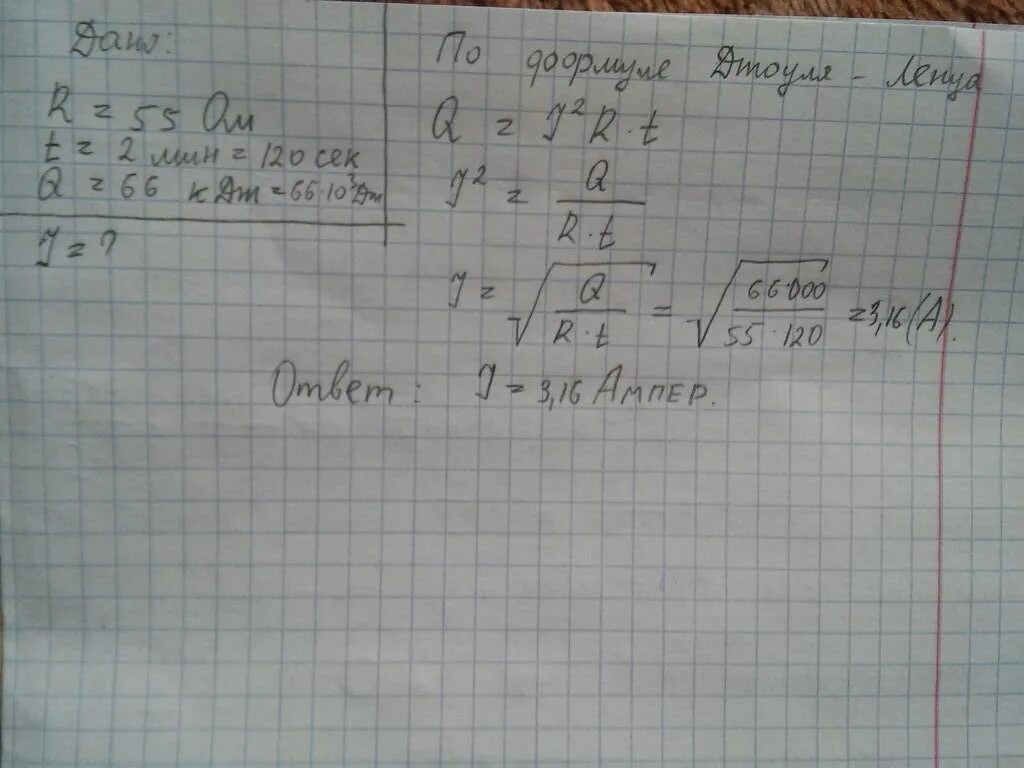 Дано:
R = 55 Ом
t = 2 мин = 120 сек
Q = 66 кДж = 66·10³Дж
J = ?
По формуле Джоуля - Ленца
Q = J² R · t
J² = Q / R · t
J = √(Q / R · t) = √(66000 / 55 · 120) = 3,16 (А).
Ответ: J = 3,16 Ампер.